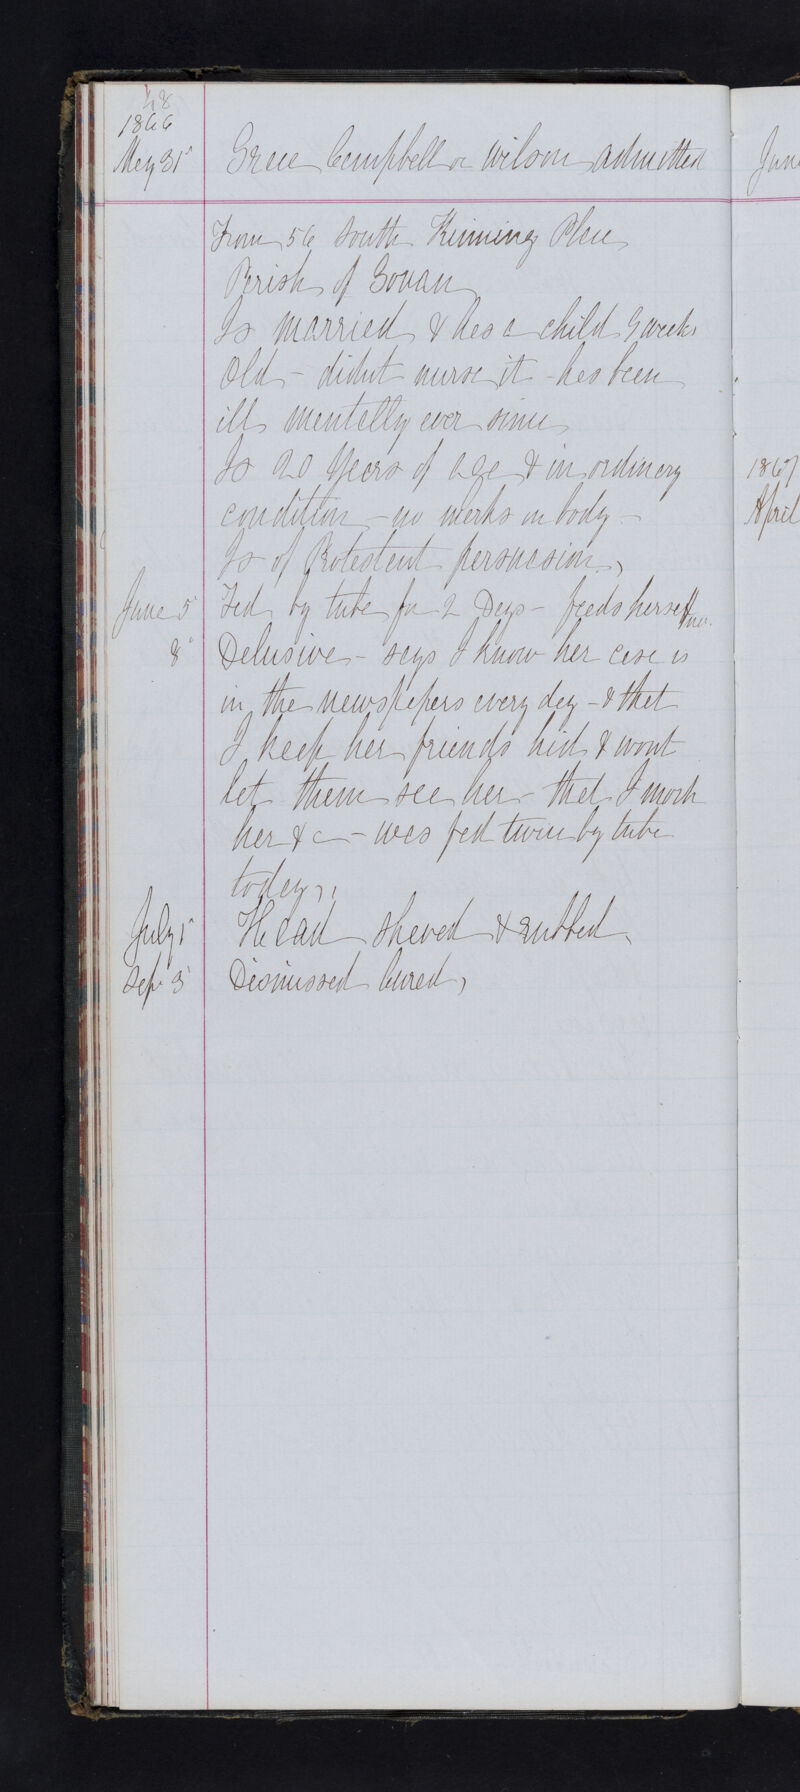 48
1866
May 31st Grace Campbell or Wilson admitted
From 56 South Kinning Place
Parish of Govan
Is married & has a child 9 weeks
old - didnt nurse it - has been
ill mentally ever since
Is 20 years of age & in ordinary
condition - no marks on body -
Is of Protestant persuasion,
June 5 Fed by tube for 2 Days - feeds herself now.
8 Delusive - says I know her case is
in the newspapers every day - & that
I keep her friends hid & wont
let them see her - that I mock
her &c - was fed twice by tube
today,,
July 1st Head shaved & rubbed.
Sep 3 Dismissed Cured,
June
1867
April